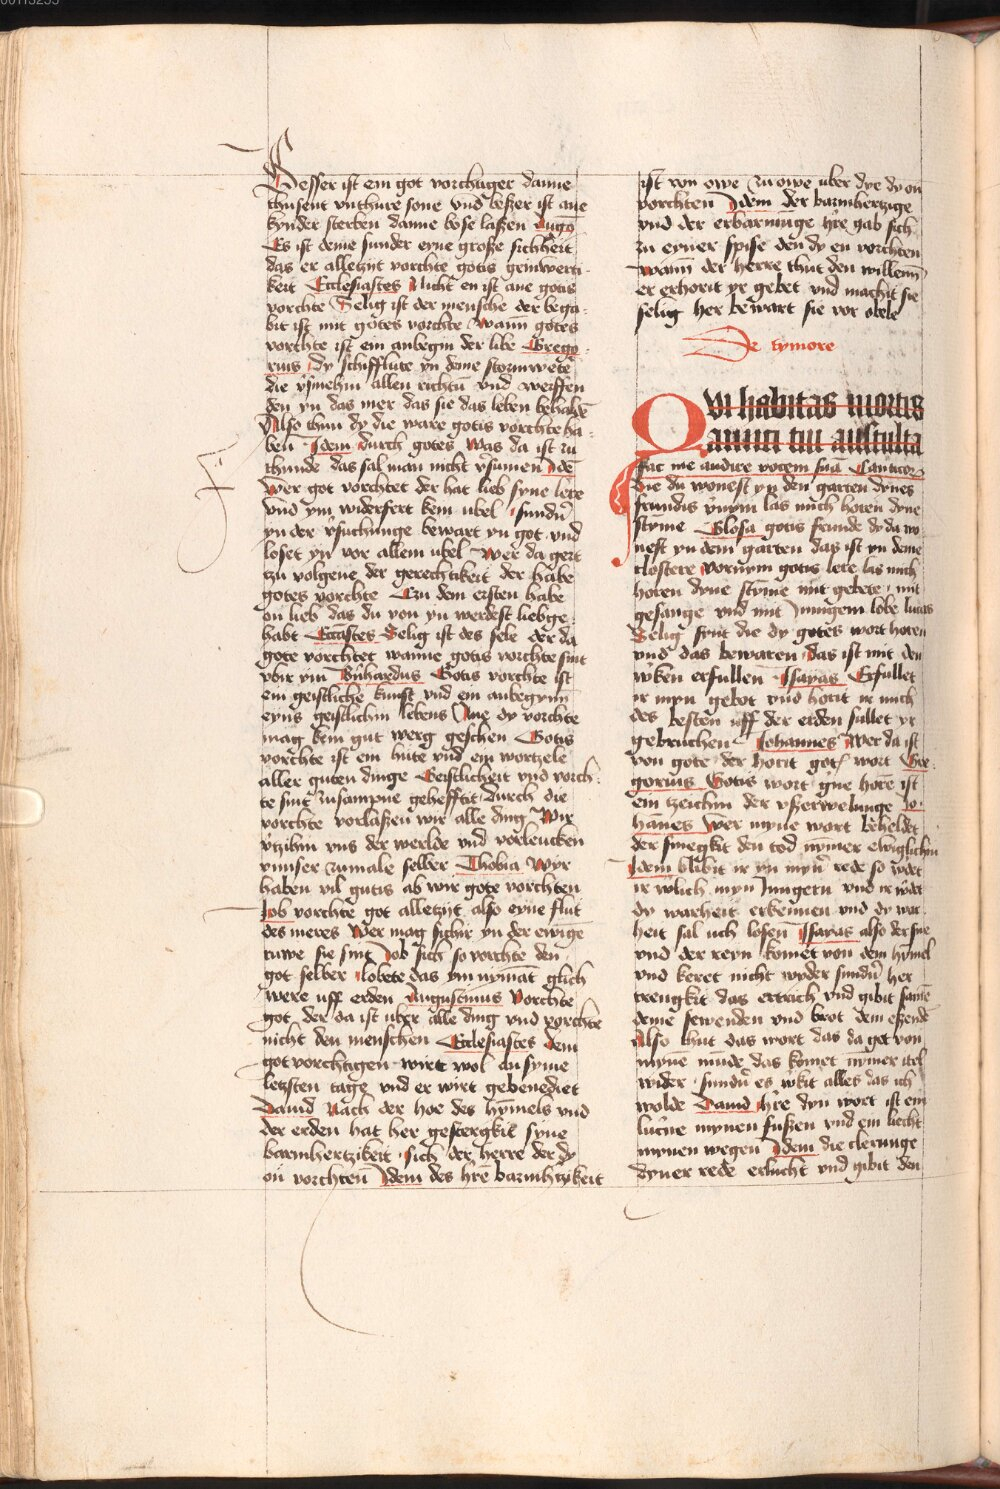 Besser ist ein got vorchtiger danne
thusent vnthure sone vnd beßer ist ane
kynder sterben danne bose laßen Augo
Es ist deme sunder eyne große sichheit
das er alletzyt vorchte gotis geinwerti-
keit Ecclesiastes Nicht en ist ane gotis
vorchte Selig ist der mensche der bega-
bit ist mit gotes vorchte Wann gotes
vorchte ist ein anbegin der libe Grego-
rius Dy schifflute yn deme stormwete
die vsmehin allen richtu vnd werffen
den yn das mer das sie das leben behalde
Also thun dy die ware gotis vorchte ha-
ben Idem durch gotes Was da ist zu
thunde das sal man nicht vsumen Ide
Wer got vorchtet der hat lieb syne lere
vnd ym widerfert kein ubel sundu
yn der vsuchunge bewart yn got vnd
loset yn vor allem ubel Wer da gert
zu volgene der gerechtikeit der habe
gotes vorchte Czu dem ersten habe
on lieb das du von yn werdest liebge-
habt Eccastes Selig ist des sele der da
gote vorchtet wanne gotis vorchte sint
vbir ym Bnhardus Gotis vorchte ist
ein geistliche kunst vnd ein anbegynn
eyns geistlichin lebens Ane dy vorchte
mag kein gut werg geschen Gotis
vorchte ist ein hute vnd ein wortzele
aller guten dinge Geistlicheit vnd vorch-
te sint zusampne gehefftit durch die
vorchte vorlaßen wir alle ding Wir
vtzihin vns der werlde vnd vorleucken
vnnser zumale selber Thobia Wyr
haben vil gutis ab wir gote vorchten
Iob vorchte got alletzyt also eyne flut
des meres Wer mag sichir yn der ewige
ruwe sie sint Iob sich so vorchte den
got selber lobete das ym nymat glich
were uff erden Augustinus Vorchte
got der da ist uber alle ding vnd vorchte
nicht den menschen Ecclesiastes dem
got vorchtigen wirt wol an syme
letsten tage vnd er wirt gebenediet
Dauid Nach der hoe des hymels vnd
der erden hat her gestergkit syne
barmhertzikeit sich der herre der dy
on vorchten Idem des hre barmhtzikeit
ist von owe zu owe uber dye dy on
vorchten Idem der barmhertzige
vnd der erbarmuge hre gab sich
zu eyner spise den dy en vorchten
wann der herre thut den willenn
er erhorit yr gebet vnd machit sie
selig her bewart sie vor obele
De tymore
Qvi habitas in ortis
amici tui ausculta
fac me audire vocem tua Canticor
Die du wonest yn den garten dynes
frundis vnym las mich horen dyne
styme Glosa gotis frunde dy da wo-
nest yn dem garten das ist yn deme
clostere vornym gotis lere las mich
horen dyne styme mit gebete mit
gesange vnd mit Innigem lobe lucas
Selig sint die dy gotes wort horen
vnd das bewaren das ist mit den
wken erfullen Isayas Erfullet
ir myn gebot vnd horit ir mich
des besten uff der erden sullet yr
gebruchen Iohannes Wer da ist
von gote der horit got wort Gre-
gorius Gotis wort gne hore ist
ein zeichin der vßerwelunge Io-
hannes Wer myne wort beheldet
der smegkit den tod nymer ewiglichin
Idem blibit ir yn myn rede so wdet
ir wlich myn Iungern vnd ir wdet
dy warheit erkennen vnd dy war-
heit sal uch losen Isayas also der sne
vnd der reyn komet von dem hymel
vnd keret nicht wyder sundn her
trengkit das ertrich vnd gibit same
deme sewenden vnd brot dem eßende
Also thut das wort das da get von
myne munde das komet nymer itel
wider sundn es wkit alles das ich
wolde Dauid hre dyn wort ist ein
lucne mynen fußen vnd ein liecht
mynen wegen Idem die clerunge
dyner rede erlucht vnd gibit den